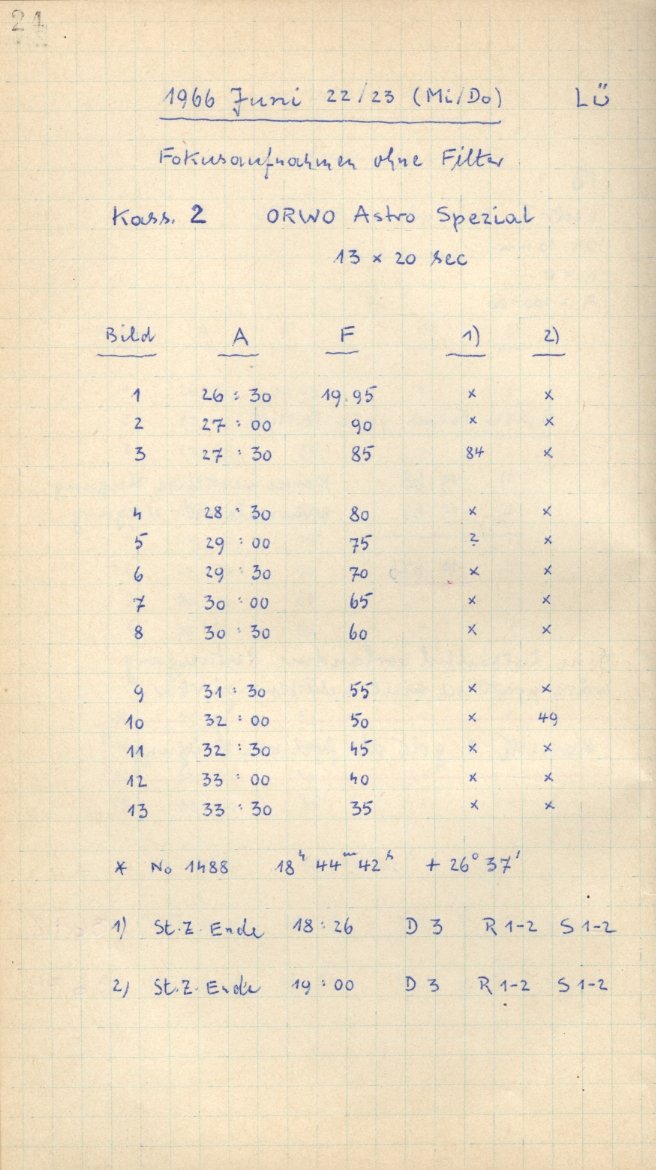 21
1966 Juni 22/23 (Mi/Do) Lü
Fokusaufnahmen ohne Filter
Kass. 2 ORWO Astro Spezial
13 × 20 sec
Bild A F 1) 2)
1 26 : 30 19.95 × ×
2 27 : 00 90 × ×
3 27 : 30 85 84 ×
4 28 : 30 80 × ×
5 29 : 00 75 ? ×
6 29 : 30 70 × ×
7 30 : 00 65 × ×
8 30 : 30 60 × ×
9 31 : 30 55 × ×
10 32 : 00 50 × 49
11 32 : 30 45 × ×
12 33 : 00 40 × ×
13 33 : 30 35 × ×
* No 1488 18ʰ 44ᵐ 42ˢ + 26° 37'
1) St.Z. Ende 18 : 26 D 3 R 1-2 S 1-2
2) St.Z. Ende 19 : 00 D 3 R 1-2 S 1-2